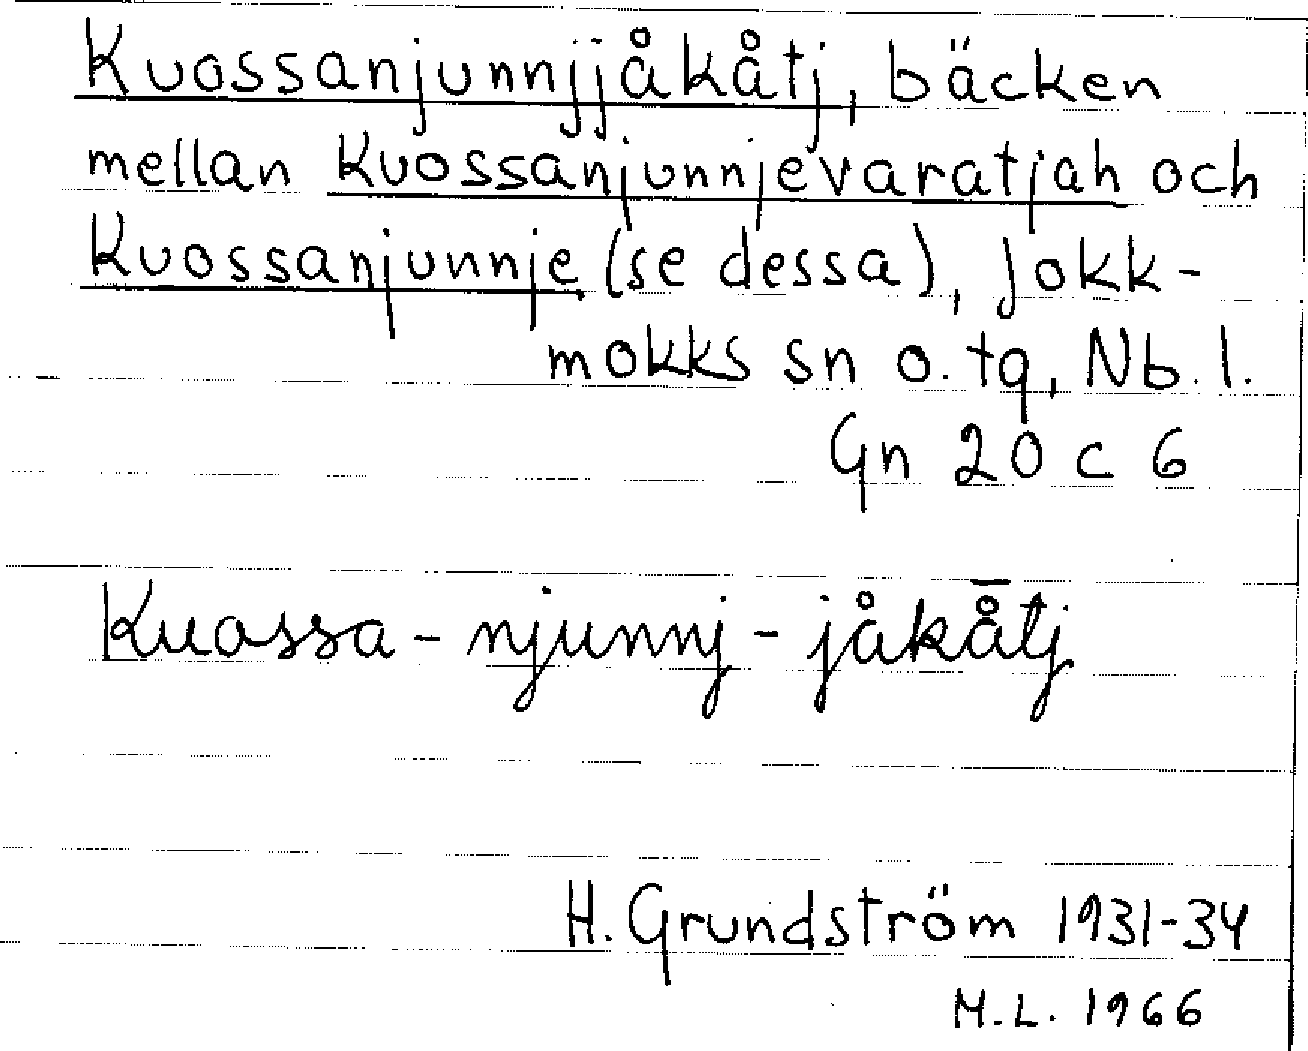 Kuossanjunnjjåkåtj, bäcken
mellan Kuossanjunnjevaratjah och
Kuossanjunnje (se dessa), Jokk-
mokks sn o. tg, Nb. l.
Gn 20 c 6
Kuossa-njunnj-jåkå̄tj
H. Grundström 1931-34
M.L. 1966